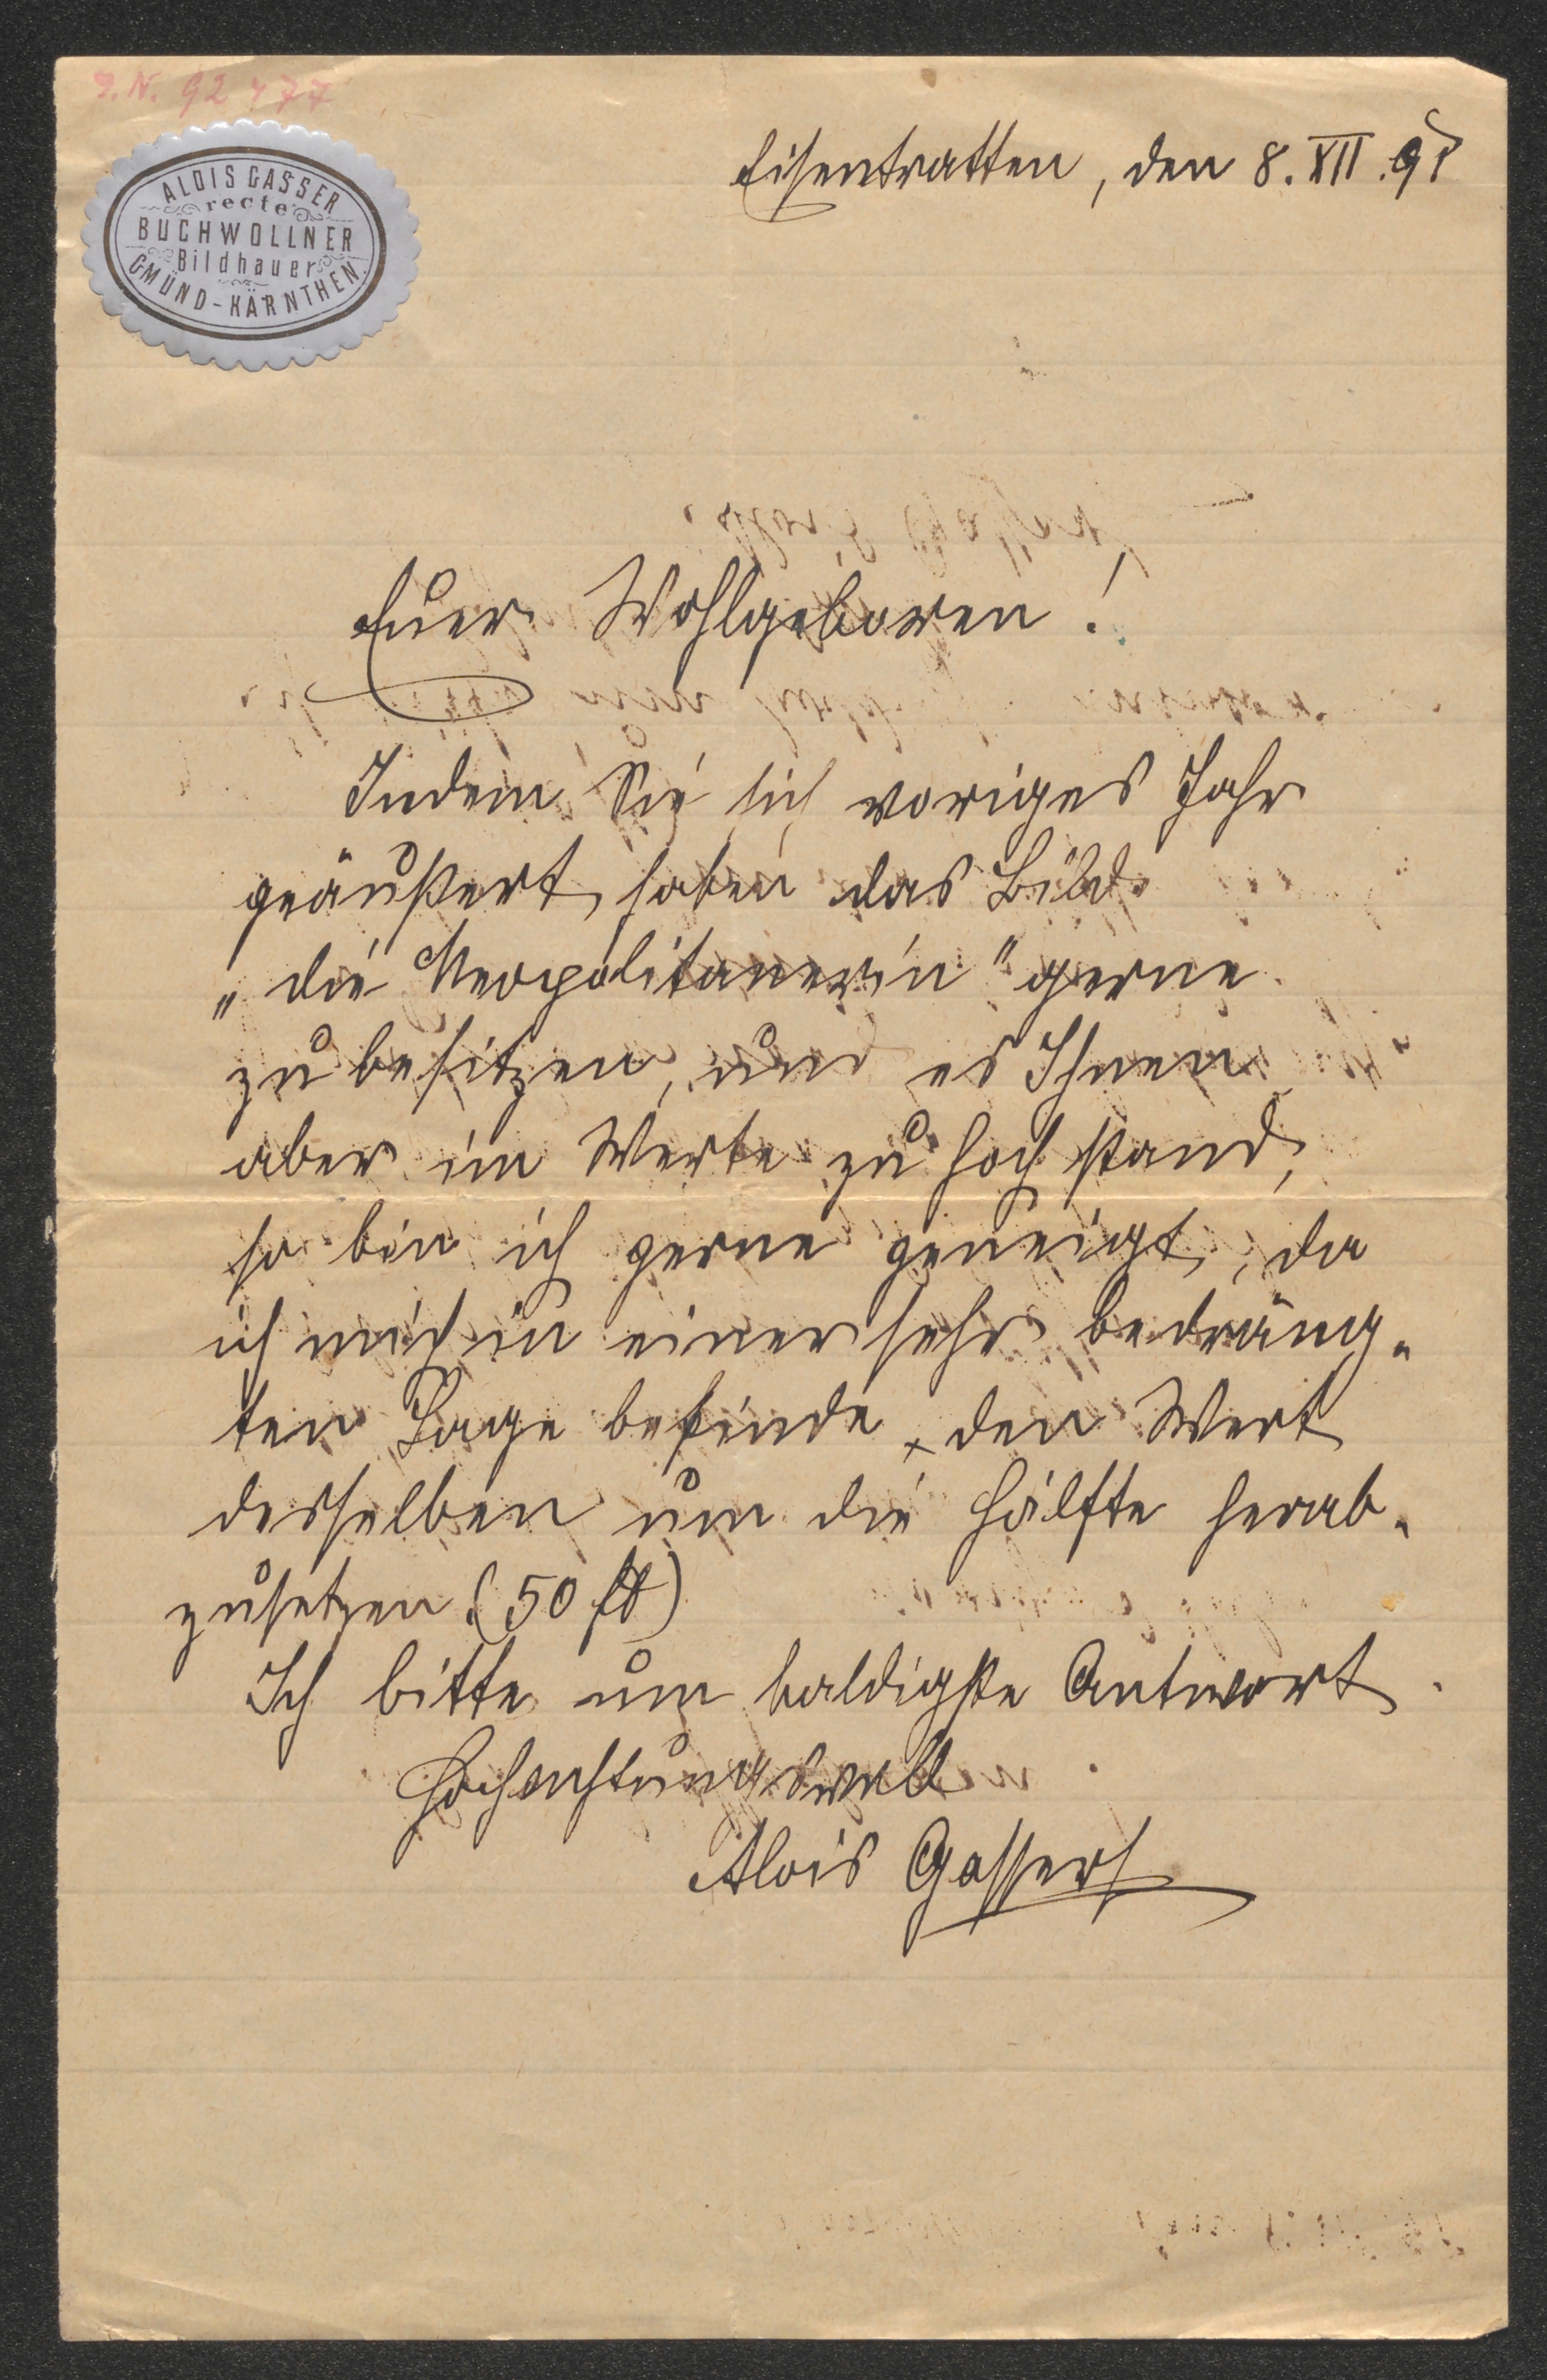 I.N. 92477
ALOIS GASSER
recte
BUCHWOLLNER
Bildhauer
GMÜND-KÄRNTHEN
Eisentratten, den 8. XII. 98
Euer Wohlgeboren!
Indem Sie sich voriges Jahr
geäußert haben das Bild
„die Neopolitanerin" gerne
zu besitzen, und es Ihnen
aber im Werte zu hoch stand,
so bin ich gerne geneigt, da
ich mich in einer sehr bedräng-
ten Lage befinde, den Wert
desselben um die Hälfte herab-
zusetzen (50 fl)
Ich bitte um baldigste Antwort.
Hochachtungsvoll
Alois Gasser